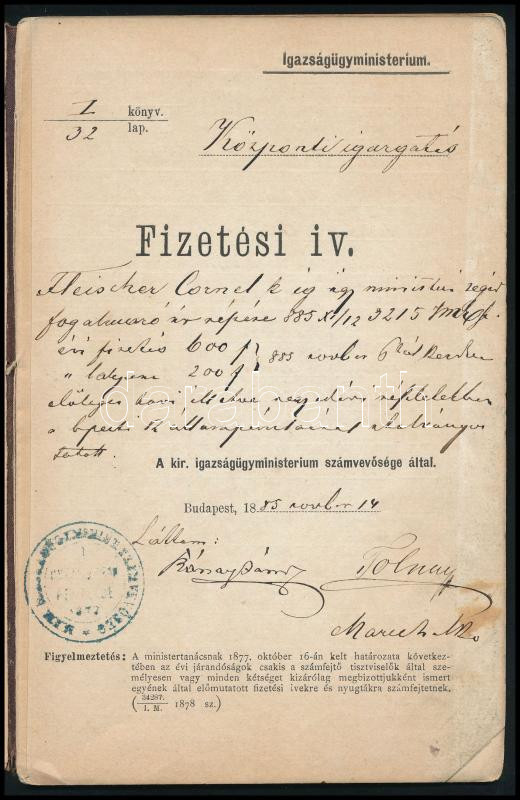 Igazságügyministerium.
I könyv.
32 lap.
Központi igazgatás
Fizetési iv.
Fleischer Cornel k ig üg ministeri segéd
fogalmazó úr részére 885 XI/12 3215
évi fizetés 600 f
" lakpénz 200 f } 885 novber
előleges havi illetve negyedévi részletekben
a bpesti
A kir. igazságügyministerium számvevősége által.
Budapest, 1885 novber 14
Láttam:
Tolnay
Figyelmeztetés: A ministertanácsnak 1877. október 16-án kelt határozata következ-
tében az évi járandóságok csakis a számfejtő tisztviselők által sze-
mélyesen vagy minden kétséget kizárólag megbizottjukként ismert
egyének által előmutatott fizetési ivekre és nyugtákra számfejtetnek.
(34287./I. M. 1878 sz.)
darabanth